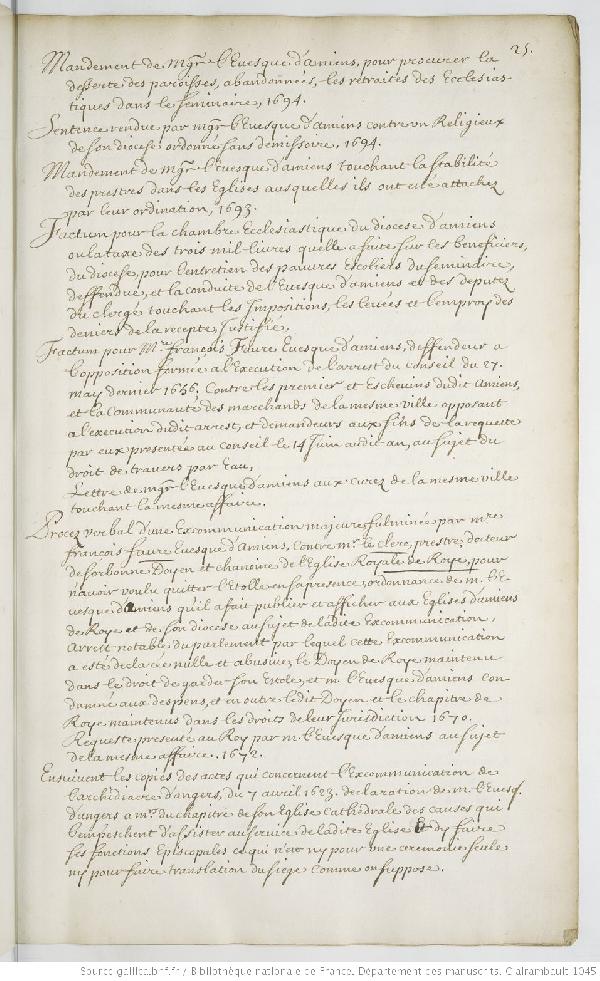 25.
Mandement de mgr. l'Euesque d'amiens, pour procurer la
desserte des paroisses, abandonnées, les retraites des Ecclesias-
tiques dans le seminaire, 1694.
Sentence rendue par mgr. l'Euesque d'amiens contre vn Religieux
de son diocese ordonné sans demissoire, 1694.
Mandement de mgr. l'Euesque d'amiens touchant la stabilité
des prestres dans les Eglises ausquelles ils ont esté attachez
par leur ordination, 1693.
Factum pour la chambre Ecclesiastique du diocese d'amiens
ou la taxe des trois mil liures quelle a faite sur les beneficiers,
du diocese, pour l'entretien des pauures Escoliers du seminaire,
deffendue, et la conduite de l'Euesque d'amiens et des deputez
du clergé touchant les Impositions, les leuées et l'employ des
deniers de la recepte, Justifiée.
Factum pour Mre. françois Faure Euesque d'amiens, deffendeur a
l'opposition formée a l'Execution de l'arrest du Conseil du 27.
may dernier 1656. Contre les premier et Escheuins dudit Amiens,
et la Communauté des marchands de la mesme ville opposant
a l'execution dudit arrest, et demandeurs aux fins de la requette
par eux presentée au conseil le 14 Juin audit an, au sujet du
droit de trauers par Eau,
Lettre de mgr. l'Euesque d'amiens aux curez de la mesme ville
touchant la mesme affaire.
Procez verbal d'une Excommunication majeure fulminée par mre
françois faure Euesque d'Amiens, Contre mr. le clerc, prestre, docteur
de sorbonne Doyen et chanoine de l'Eglise Royale de Roye, pour
n'auoir voulu quitter l'Etolle en sa presence, ordonnance de m. l'E-
uesque d'Amiens qu'il a fait publier et afficher aux Eglises d'amiens
de Roye et de son diocese au sujet de ladite Excommunication,
Arrest notable du parlement par lequel cette Excommunication
a esté declarée nulle et abusiue, le Doyen de Roye maintenu
dans le droit de garder son Etole, et m. l'Euesque d'amiens con-
damné aux despens, et en outre ledit Doyen et le chapitre de
Roye maintenus dans les droits de leur Jurisdiction 1670.
Requeste presenté au Roy par m. l'Euesque d'amiens au sujet
de la mesme affaire. 1672.
Ensuiuent les copies des actes qui concernent l'Excommunication de
l'archidiacre d'angers, du 7 auril 1623. declaration de m. l'Euesq.
d'angers a mrs. du chapitre de son Eglise Cathédrale des causes qui
l'empeschent d'assister au seruice de ladite Eglise Et d'y faire
ses fonctions Episcopales ce qui n'est ny pour une ceremonie seule
ny pour faire translation du siege comme on suppose.
Source gallica.bnf.fr / Bibliothèque nationale de France. Département des manuscrits. Clairambault 1045